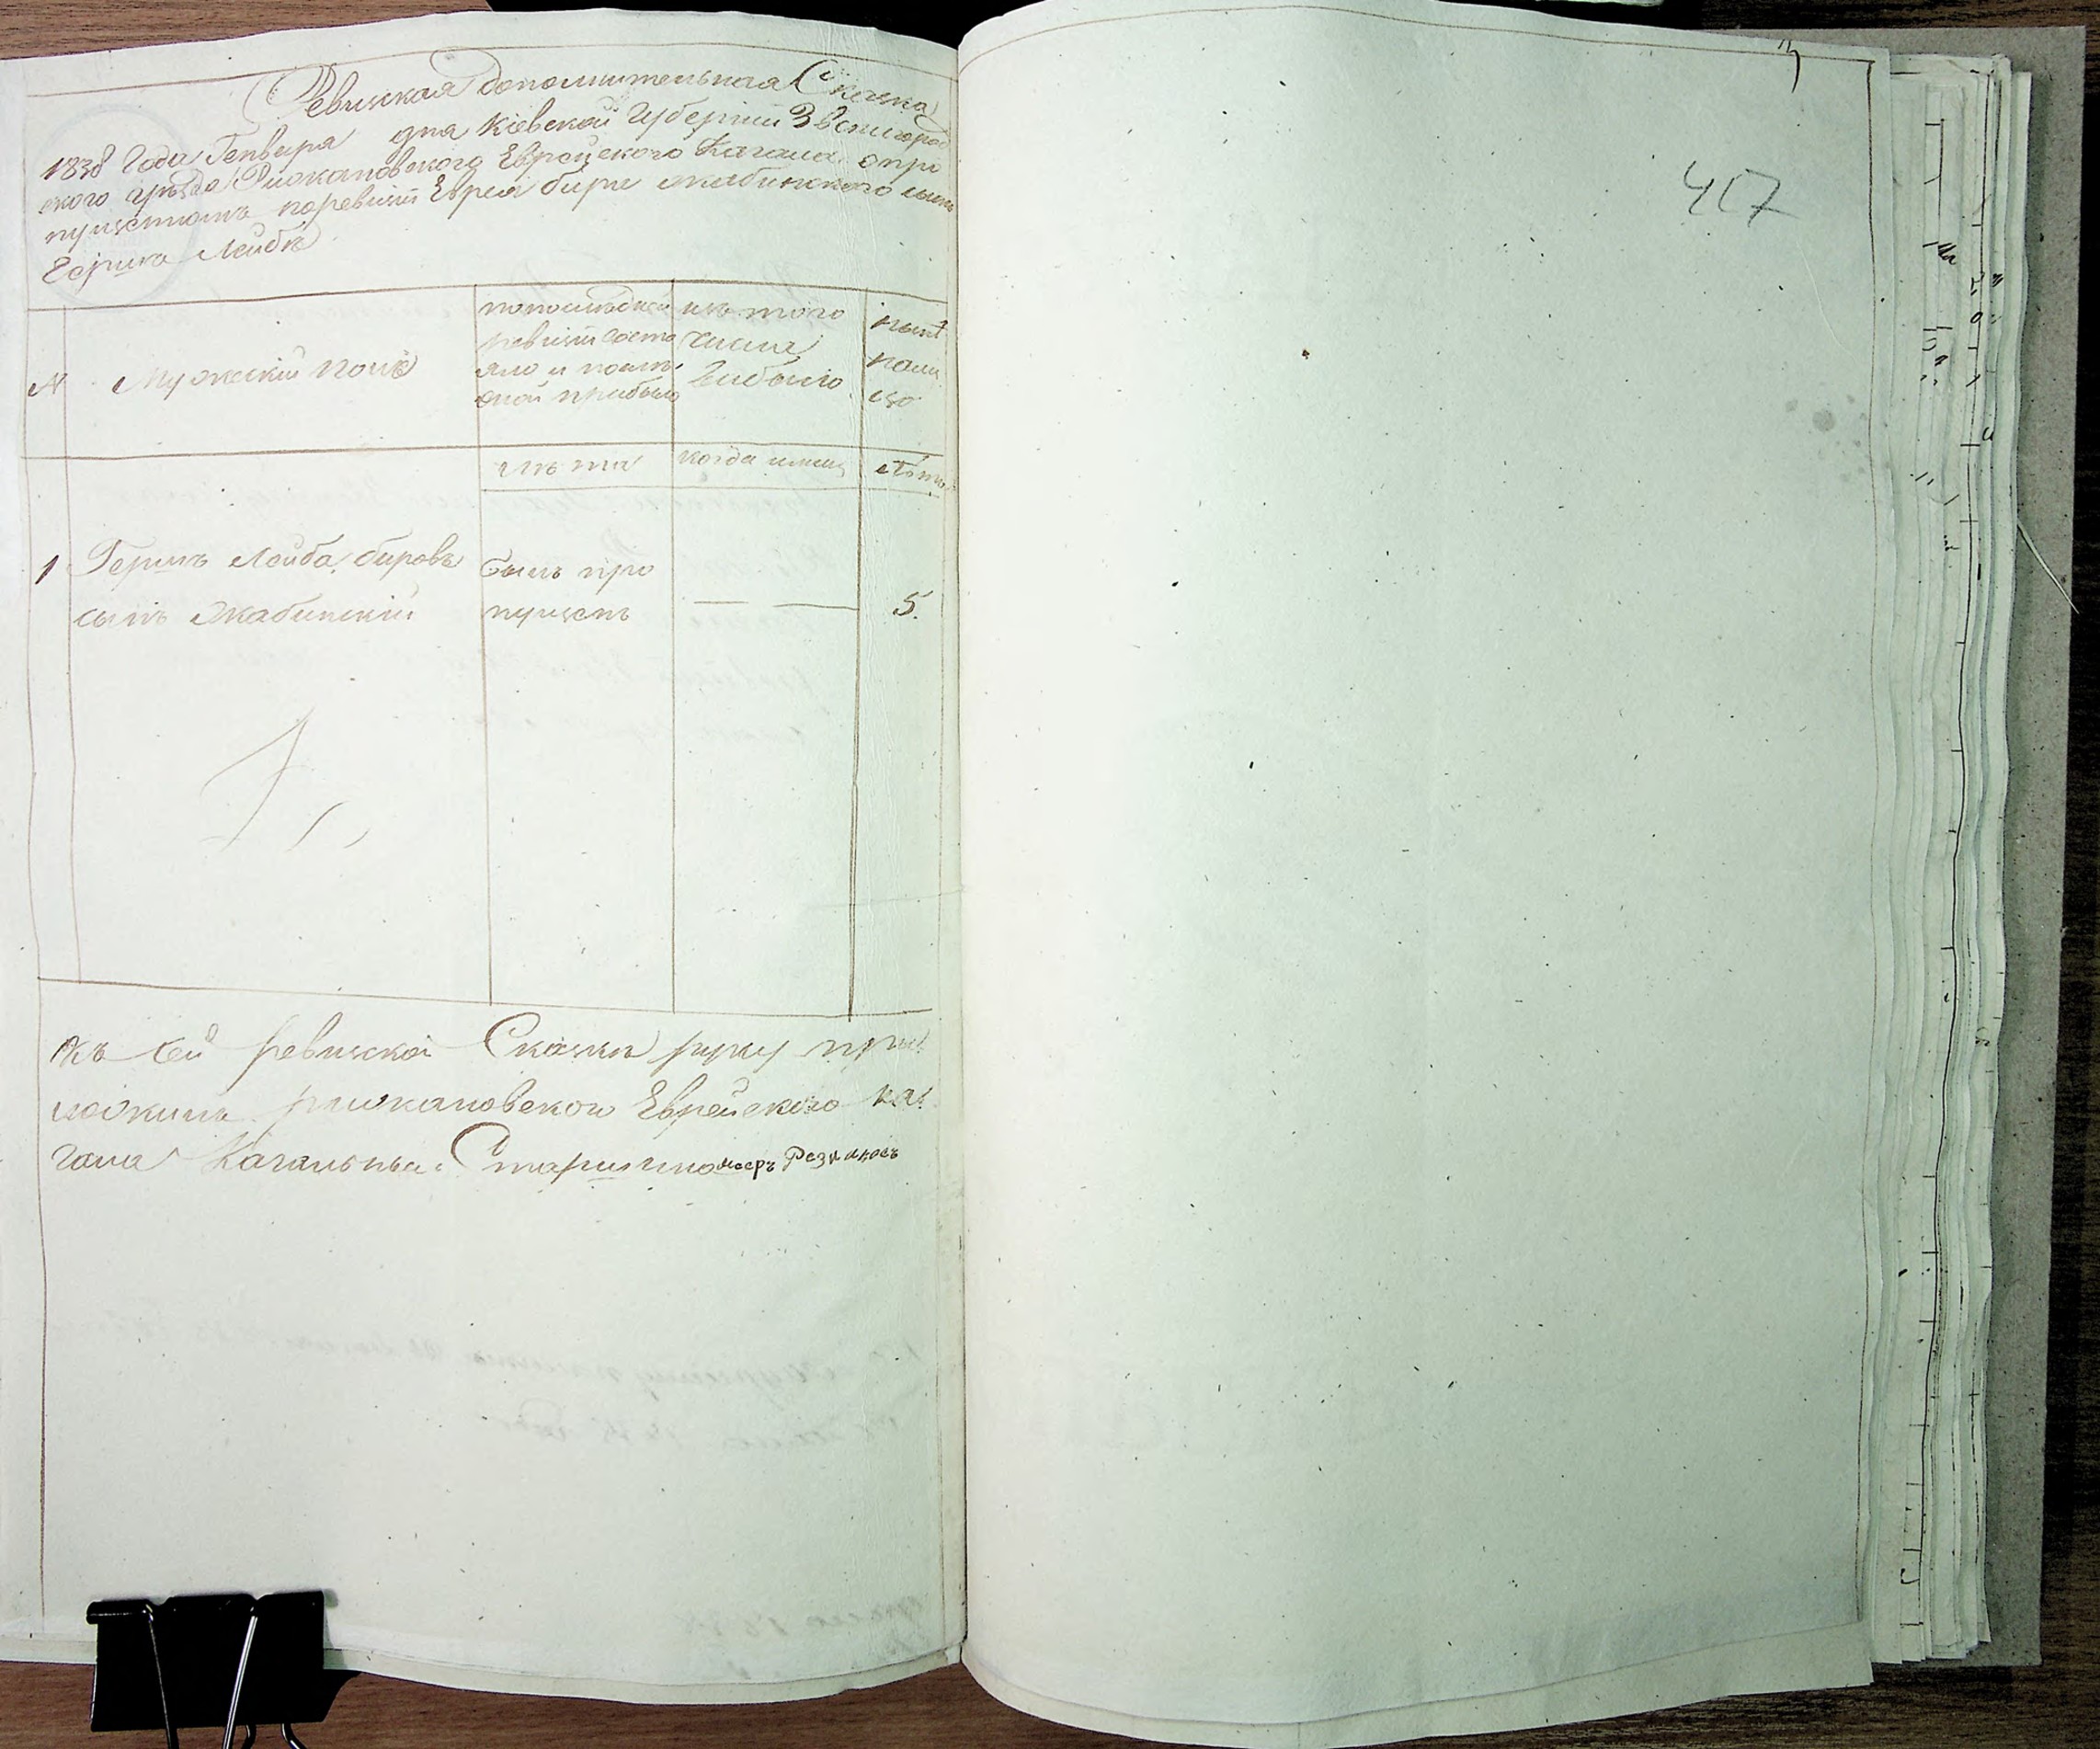 Ревизская дополнительная Сказка
1838 Года Генваря дня Кіевской Губерніи Звенигород
ского уѣзда Рижановского Еврейского Кагала о про
пущенномъ поревизіи Еврея бира жабинского сынѣ
Гершка Лейбѣ
N Мужескій полъ
попослѣдней ревизіи состо яло и послѣ оной прибыло
изъ того числа выбыло
нынѣ нали цо
лѣта когда имен лѣта
1 Гершъ Лейба бировъ был про
сынъ Жабинскій пущенъ — — 5.
417
къ сей ревизской Сказки руку при
ложилъ рижановского Еврейского ка
гала Кагальны Старшина мееръ Резниковъ